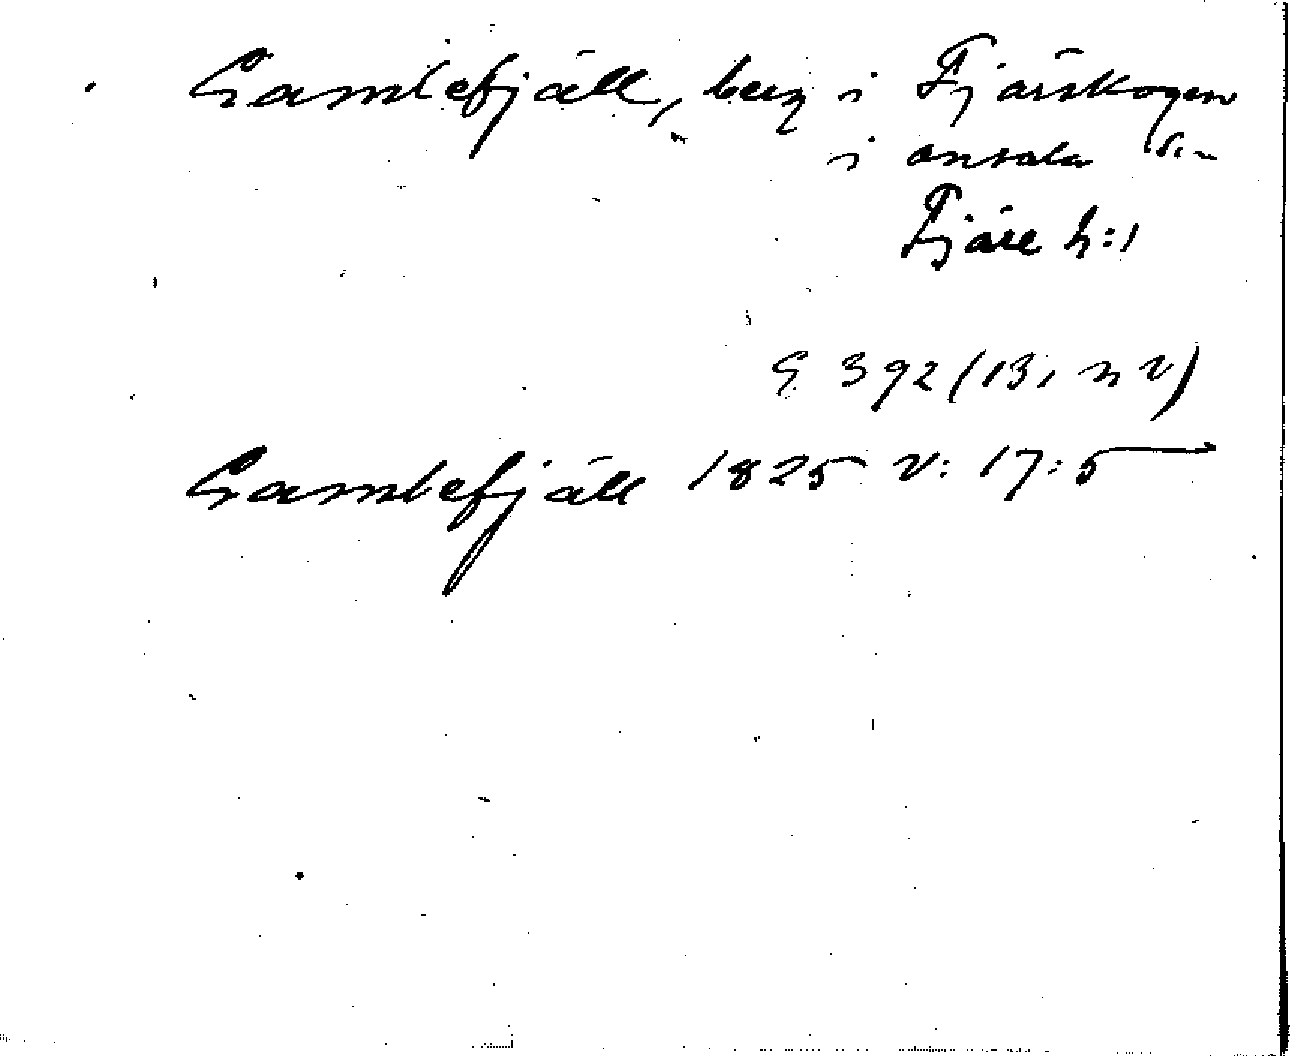 Gamlefjäll, berg i Fjärskogen
i onsala sn
Fjäre h:d
G 392 (131 n v)
Gamlefjäll 1825 v: 17:5